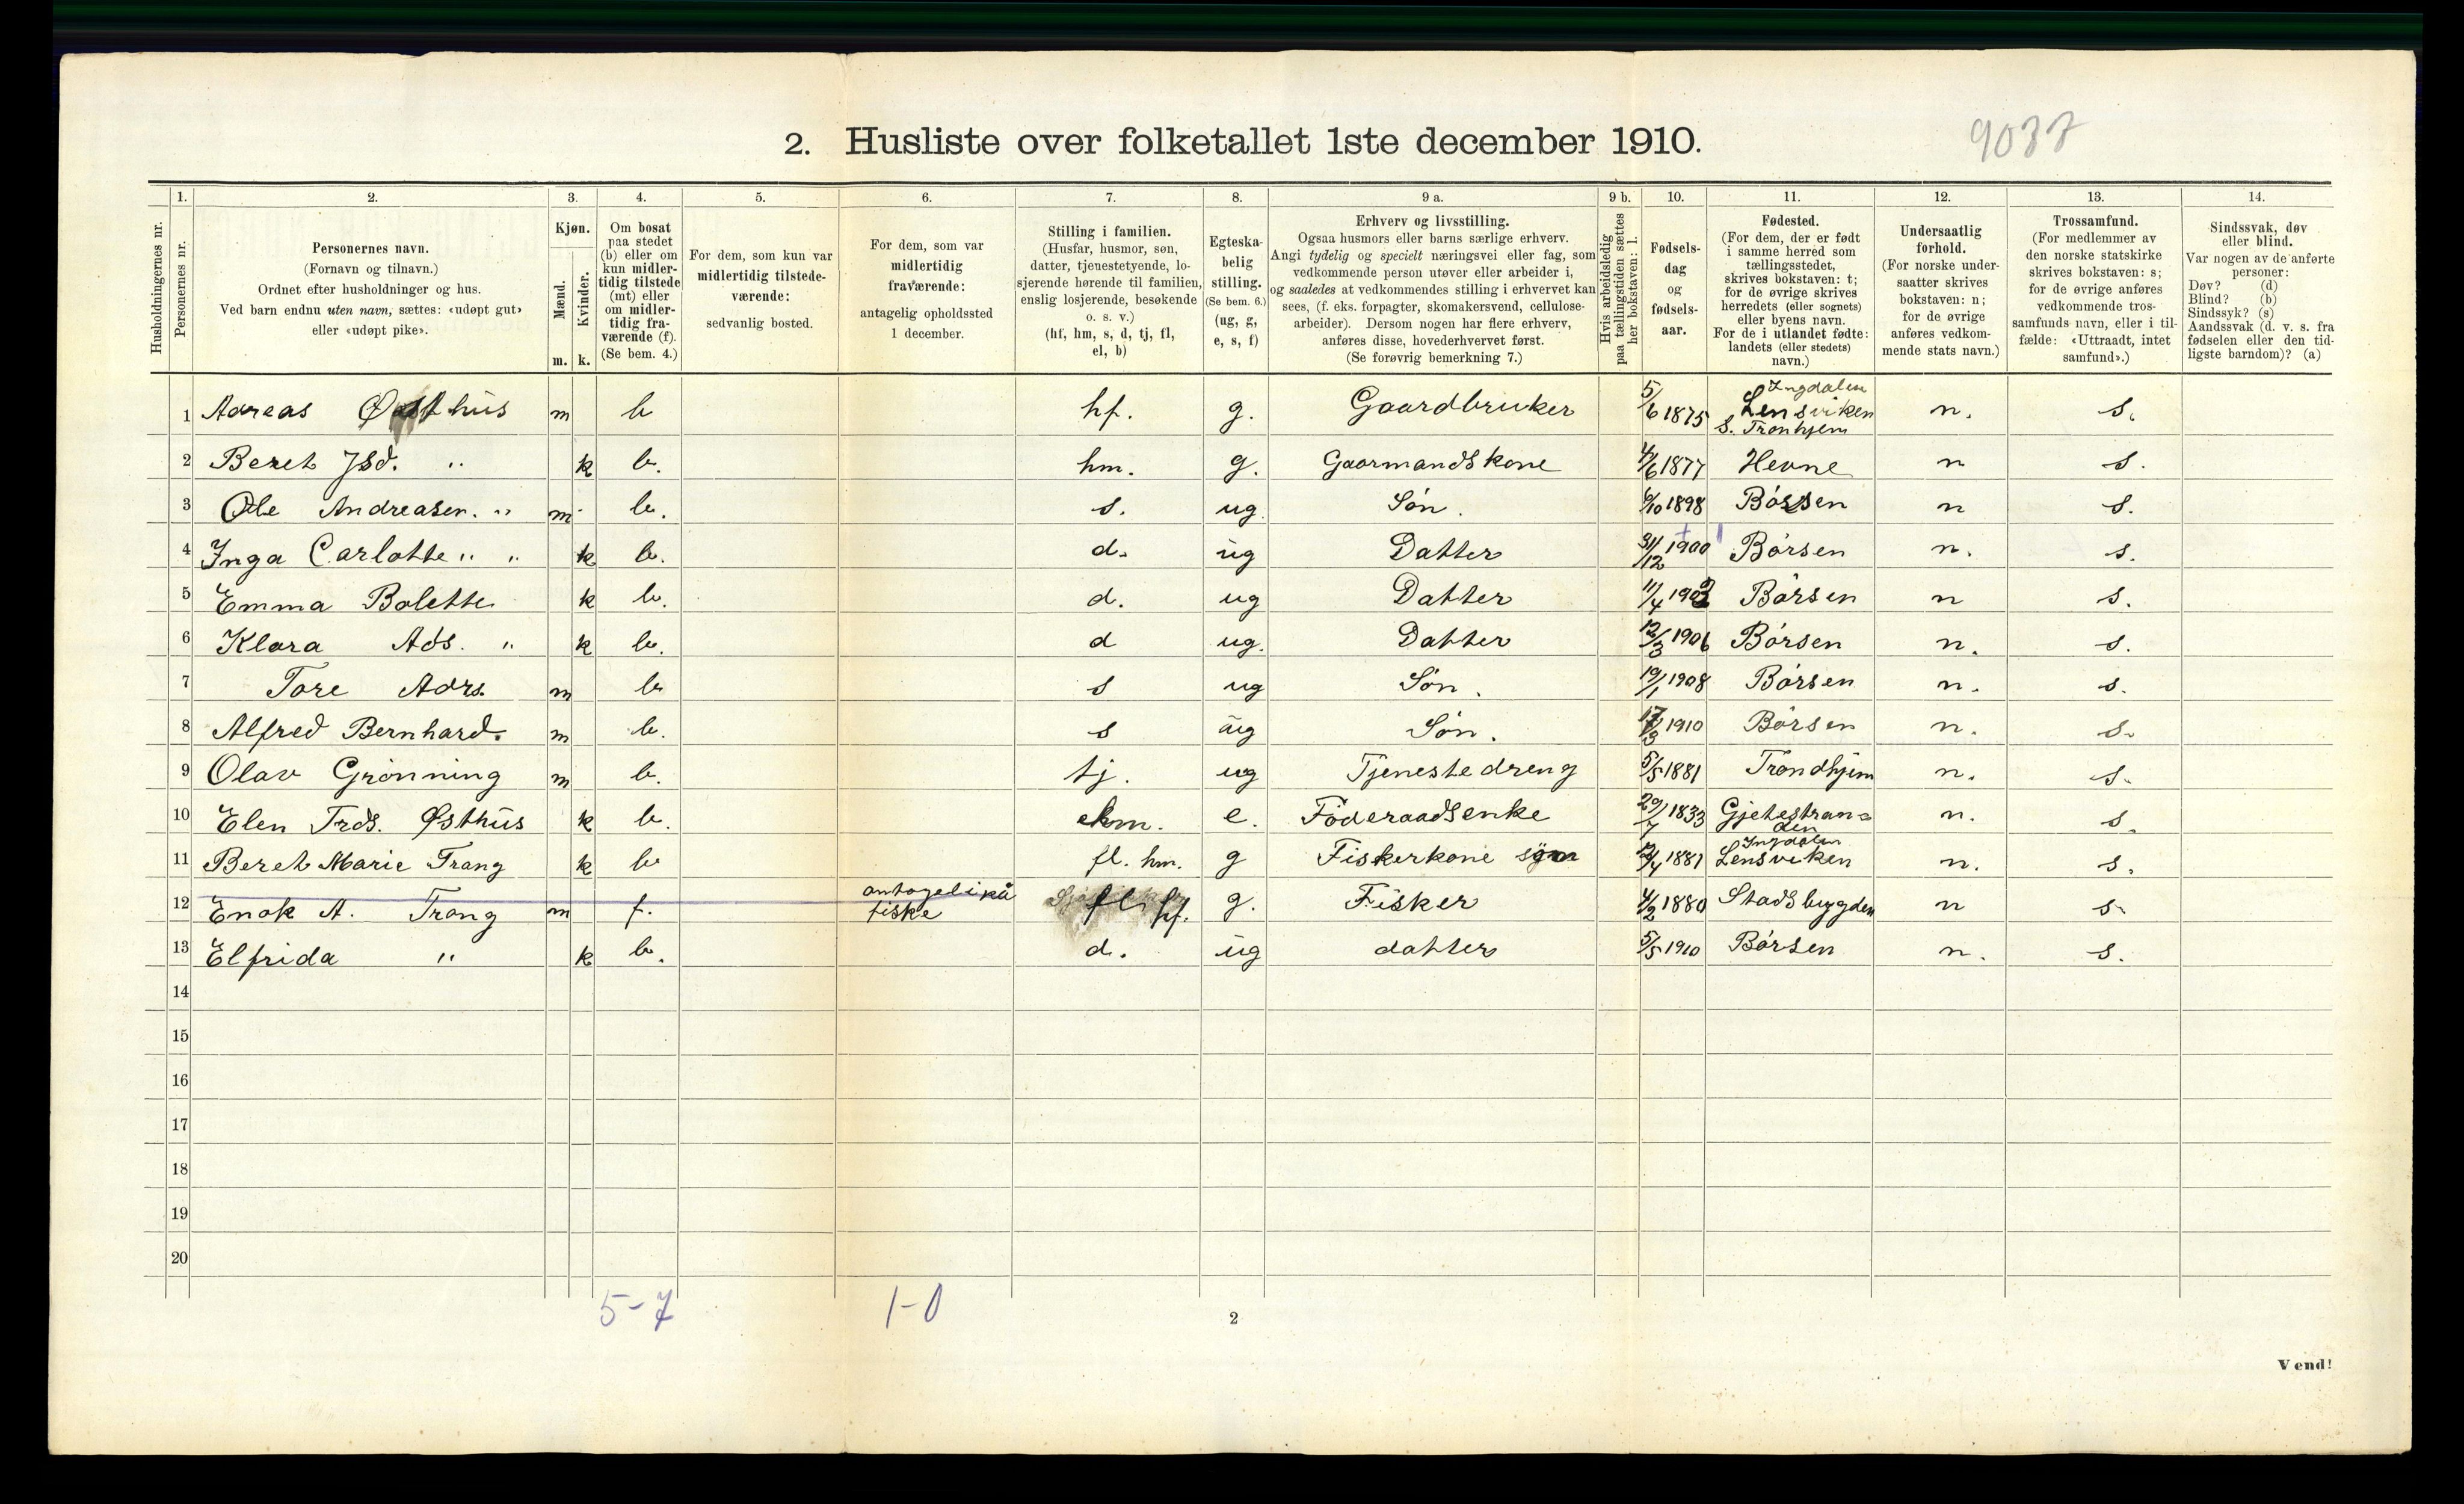 2. Husliste over folketallet 1ste december 1910.
9037
Husholdningernes nr.
1. Personernes nr.
2. Personernes navn.
(Fornavn og tilnavn.)
Ordnet efter husholdninger og hus.
Ved barn endnu uten navn, sættes: «udøpt gut»
eller «udøpt pike».
3. Kjøn.
Mænd. Kvinder.
m. k.
4. Om bosat
paa stedet
(b) eller om
kun midler-
tidig tilstede
(mt) eller
om midler-
tidig fra-
værende (f).
(Se bem. 4.)
5. For dem, som kun var
midlertidig tilstede-
værende:
sedvanlig bosted.
6. For dem, som var
midlertidig
fraværende:
antagelig opholdssted
1 december.
7. Stilling i familien.
(Husfar, husmor, søn,
datter, tjenestetyende, lo-
sjerende hørende til familien,
enslig losjerende, besøkende
o. s. v.)
(hf, hm, s, d, tj, fl,
el, b)
8. Egteska-
belig
stilling.
(Se bem. 6.)
(ug, g,
e, s, f)
9 a. Erhverv og livsstilling.
Ogsaa husmors eller barns særlige erhverv.
Angi tydelig og specielt næringsvei eller fag, som
vedkommende person utøver eller arbeider i,
og saaledes at vedkommendes stilling i erhvervet kan
sees, (f. eks. forpagter, skomakersvend, cellulose-
arbeider). Dersom nogen har flere erhverv,
anføres disse, hovederhvervet først.
(Se forøvrig bemerkning 7.)
9 b. Hvis arbeidsledig
paa tællingstiden sættes
her bokstaven: l.
10. Fødsels-
dag
og
fødsels-
aar.
11. Fødested.
(For dem, der er født
i samme herred som
tællingsstedet,
skrives bokstaven: t;
for de øvrige skrives
herredets (eller sognets)
eller byens navn.
For de i utlandet fødte:
landets (eller stedets)
navn.)
12. Undersaatlig
forhold.
(For norske under-
saatter skrives
bokstaven: n;
for de øvrige
anføres vedkom-
mende stats navn.)
13. Trossamfund.
(For medlemmer av
den norske statskirke
skrives bokstaven: s;
for de øvrige anføres
vedkommende tros-
samfunds navn, eller i til-
fælde: «Uttraadt, intet
samfund».)
14. Sindssvak, døv
eller blind.
Var nogen av de anførte
personer:
Døv? (d)
Blind? (b)
Sindssyk? (s)
Aandssvak (d. v. s. fra
fødselen eller den tid-
ligste barndom)? (a)
1 Adreas Østhus m b hf. g. Gaardbruker 5/6 1875 Ingdalen Lensviken S. Tronhjem n. s.
2 Beret Jsd. " k b. hm. g. Gaarmandskone 4/6 1877 Hevne n s.
3 Ole Andreasen. " m b. s. ug. Søn. 6/10 1898 Børsen n s.
4 Inga Carlotte " " k b. d. ug Datter 31/12 1900 Børsen n. s.
5 Emma Bolette k b. d. ug Datter 11/4 1903 Børsen n s.
6 Klara Ads. " k b. d ug. Datter 12/3 1906 Børsen n. s.
7 Tore Adrs. m b s ug Søn. 19/1 1908 Børsen n. s.
8 Alfred Bernhard. m b. s ug Søn. 17/3 1910 Børsen n. s.
9 Olav Grønning m b. tj. ug Tjenestedreng 5/5 1881 Trondhjem n. s.
10 Elen Trds. Østhus k b. e. Føderaadsenke 29/7 1833 Gjetastranden n. s.
11 Beret Marie Trang k b fl. hm. g Fiskerkone 1881 Ingdalen Lensviken n. s.
12 Enok A. Trang m f. antageli på fiske fl. hf. g. Fisker 4/2 1880 Stadsbygden n s.
13 Elfrida " k b. d. ug datter 5/5 1910 Børsen n. s.
14
15
16
17
18
19
20
5-7 1-0
2
Vend!